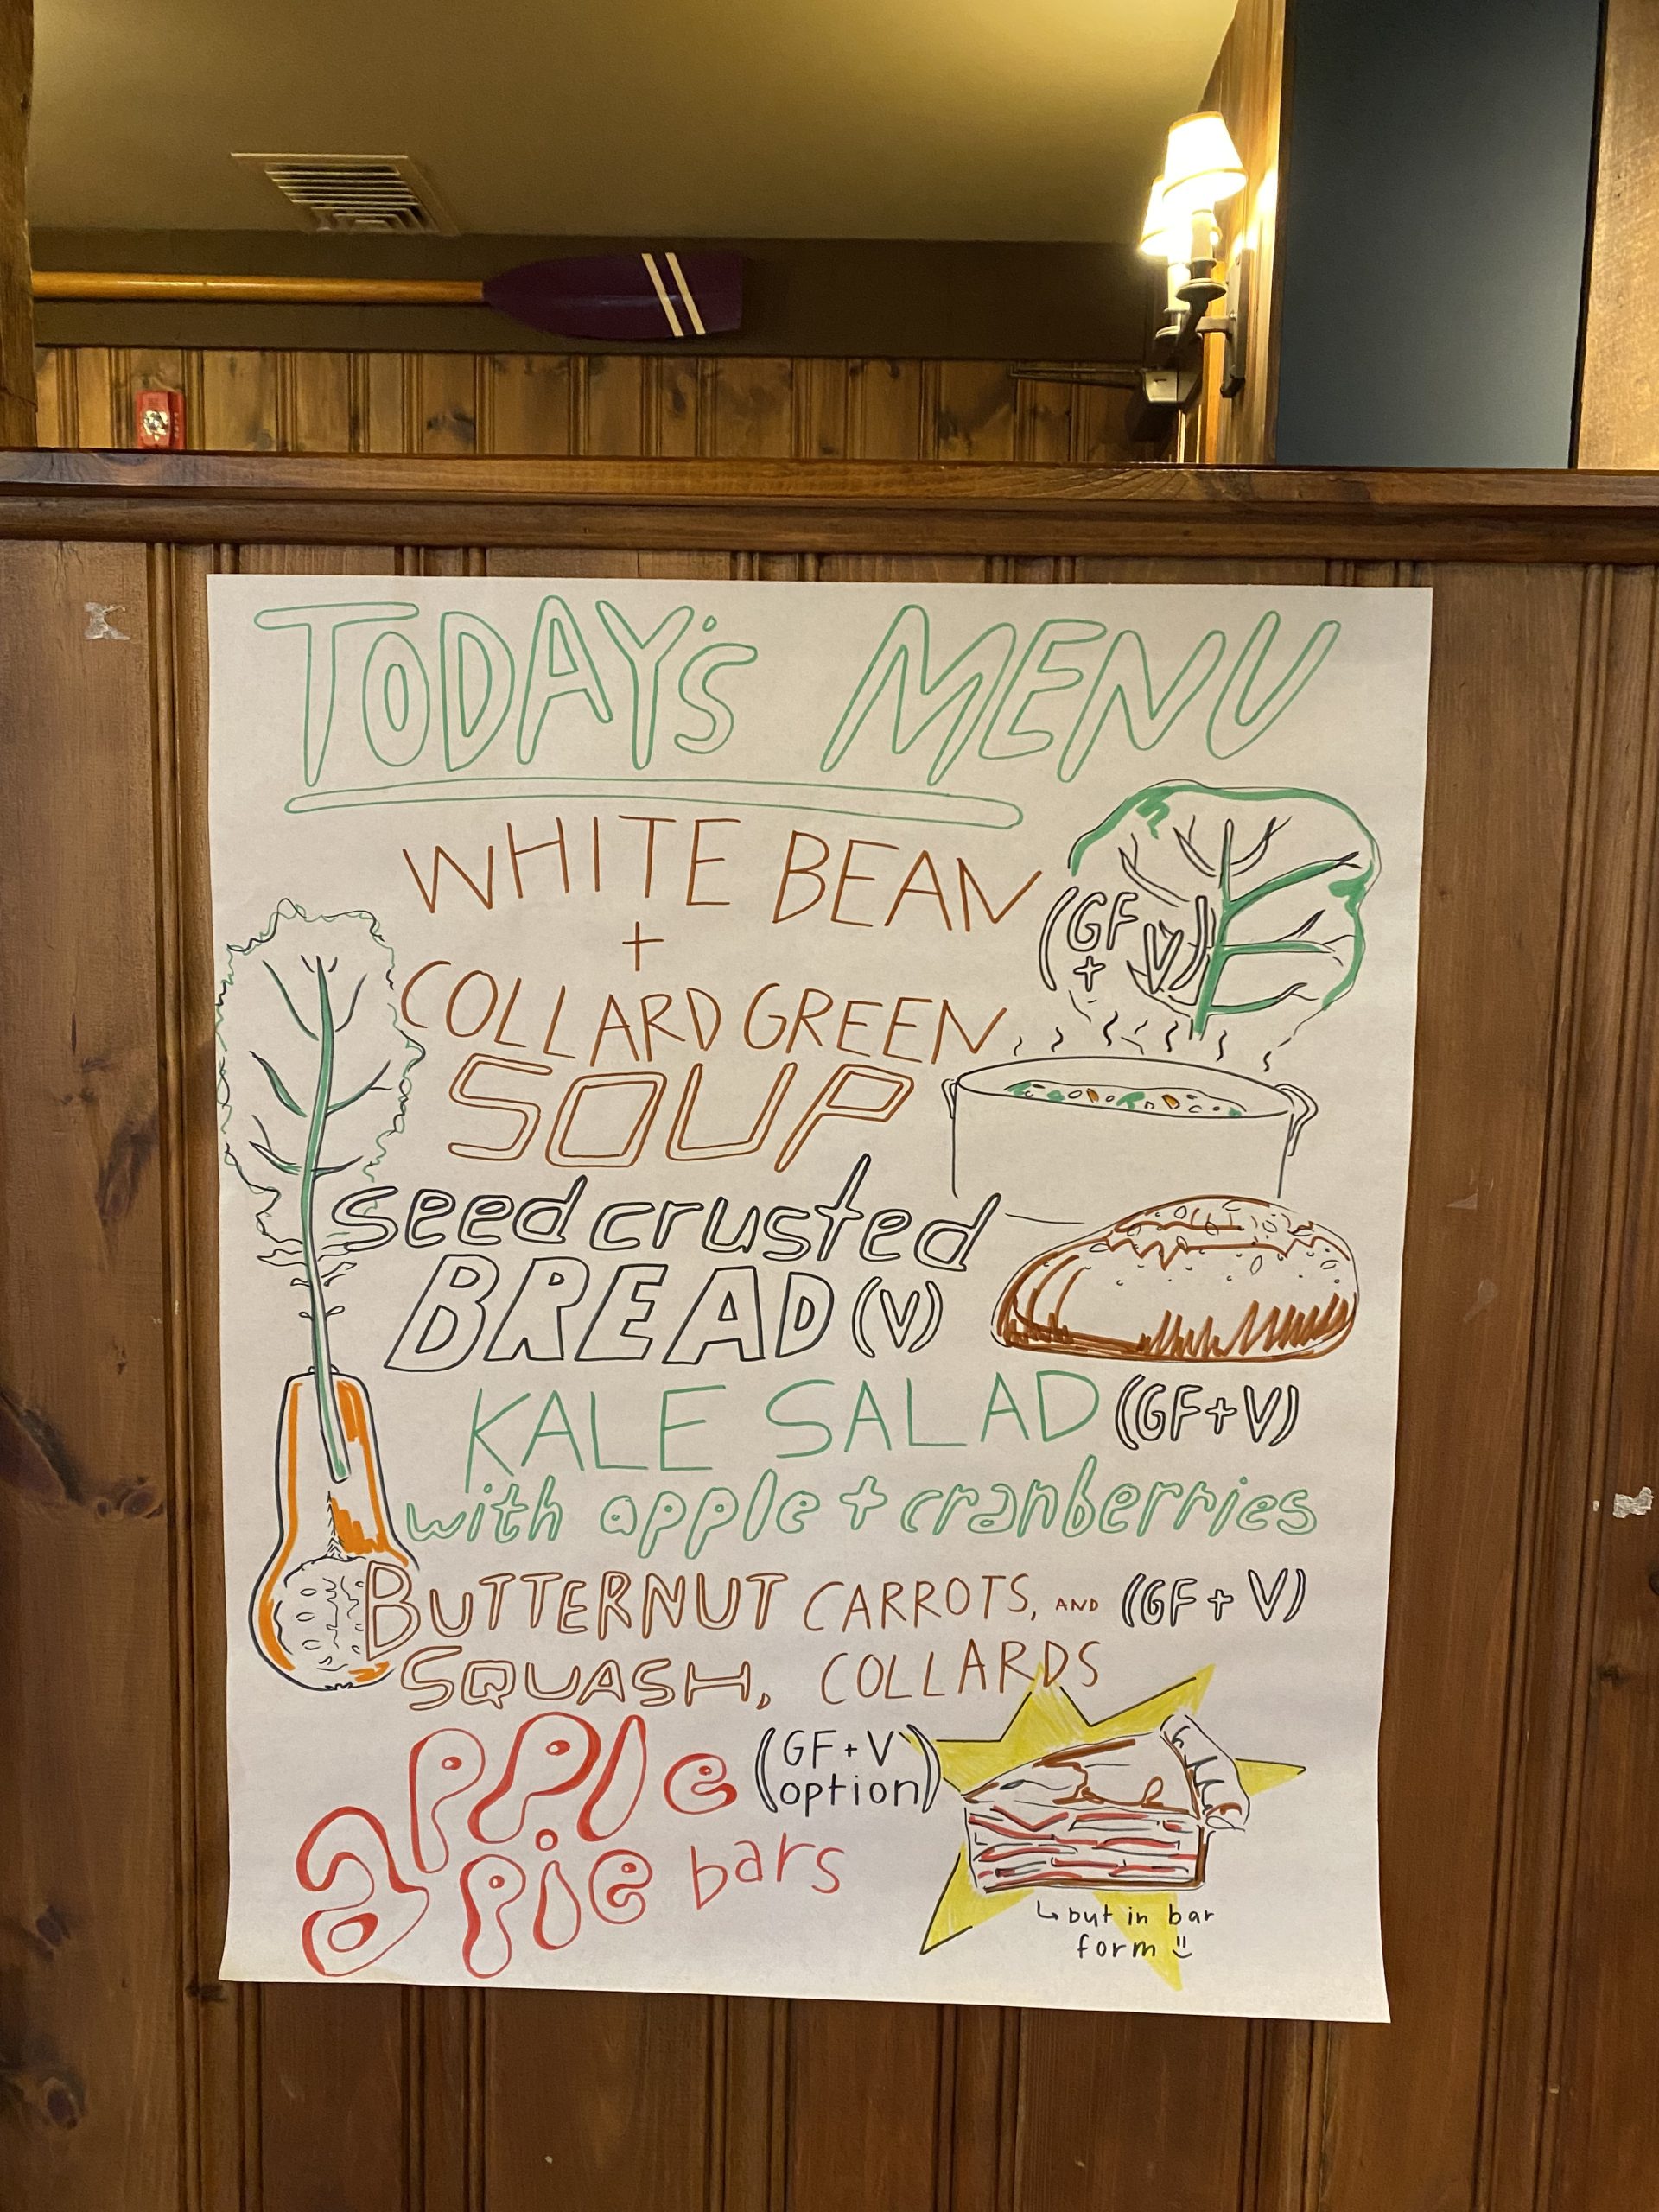 TODAY'S MENU
WHITE BEAN
+
COLLARD GREEN
SOUP
(GF
+ V)
seed crusted
BREAD (V)
KALE SALAD (GF+V)
with apple + cranberries
BUTTERNUT CARROTS, AND (GF+V)
SQUASH, COLLARDS
apple (GF+V
option)
pie bars
↳ but in bar
form :)